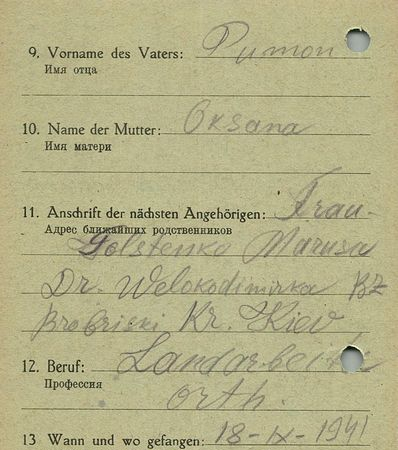 9. Vorname des Vaters: Pumon
Имя отца
10. Name der Mutter: Oksana
Имя матери
11. Anschrift der nächsten Angehörigen: Frau
Адрес ближайших родственников
Golstenko Marusa
Dr. Welokodimirka BZ
Brobriski Kr. Kiev
12. Beruf: Landarbeiter
Профессия
orth.
13 Wann und wo gefangen: 18-IX-1941